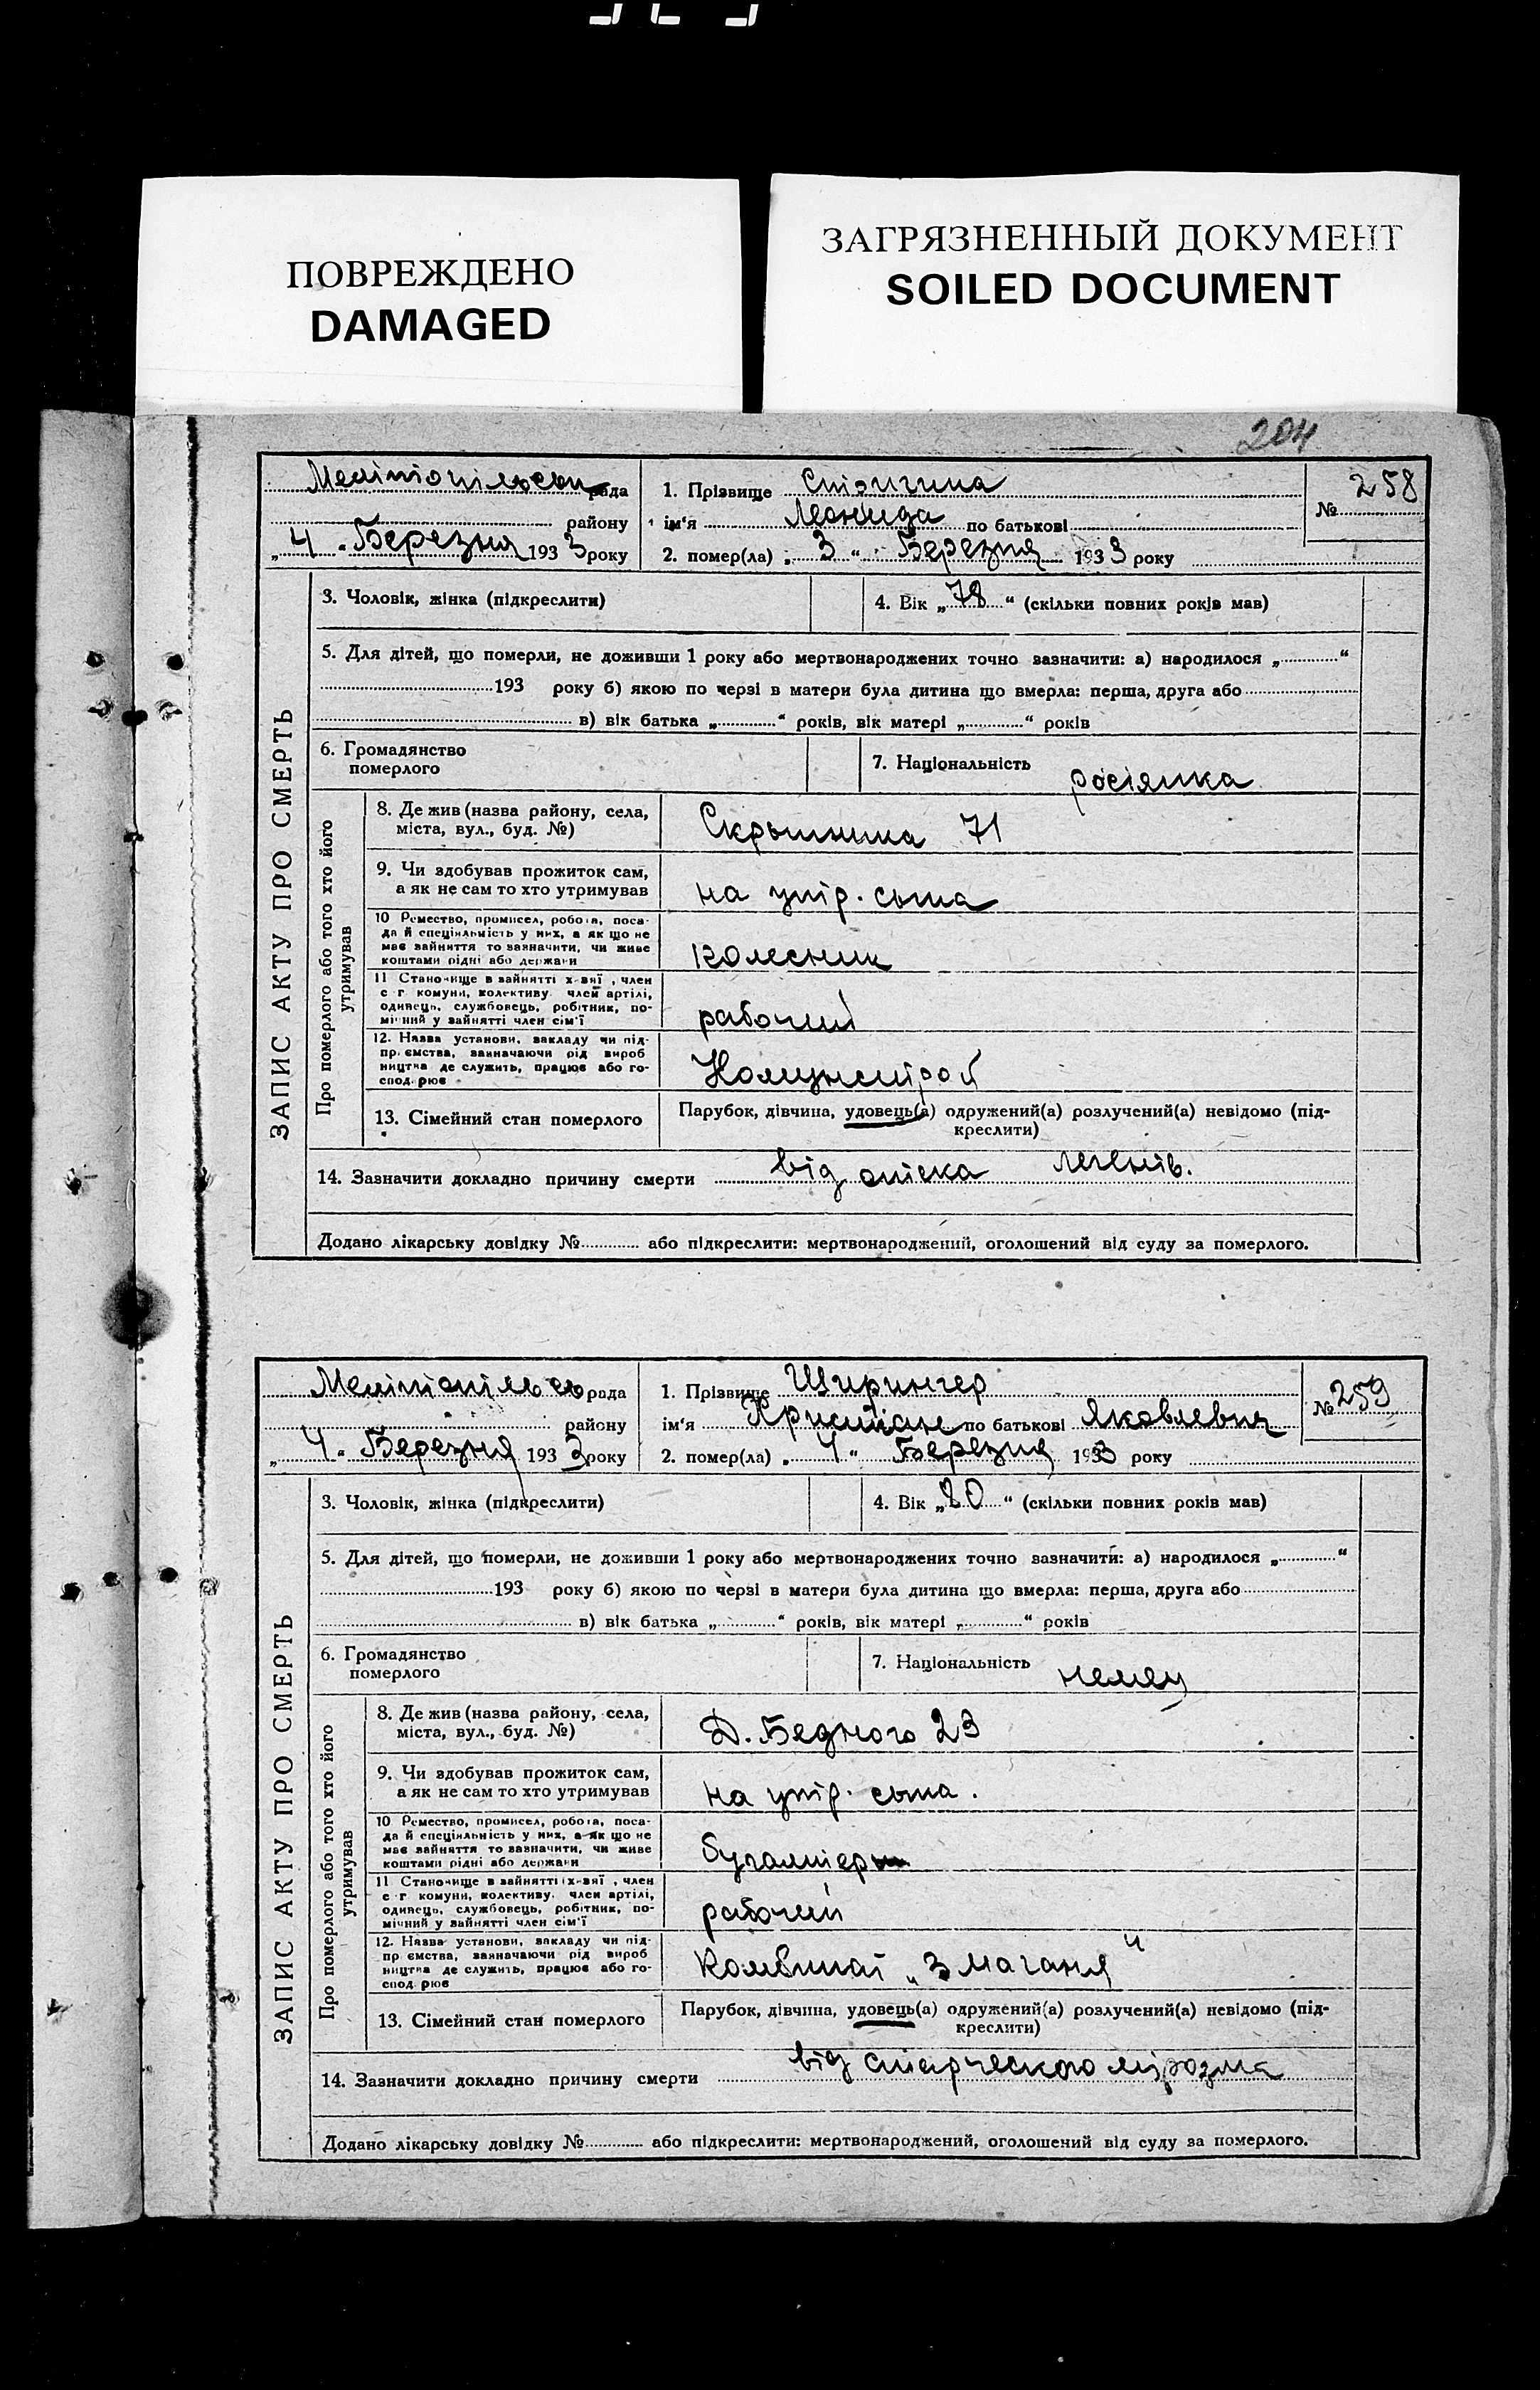 ПОВРЕЖДЕНО
DAMAGED
ЗАГРЯЗНЕННЫЙ ДОКУМЕНТ
SOILED DOCUMENT
204
ЗАПИС АКТУ ПРО СМЕРТЬ
Мелітопільськ рада
району
„ 4 " Березня 1933 року
1. Прізвище
ім'я Леонида по батькові
2. помер(ла) „ 3 " Березня 1933 року
№ 258
3. Чоловік, жінка (підкреслити)
4. Вік „ 78 " (скільки повних років мав)
5. Для дітей, що померли, не доживши 1 року або мертвонароджених точно зазначити: а) народилося „ "
193 року б) якою по черзі в матери була дитина що вмерла: перша, друга або
в) вік батька „ " років, вік матері „ " років
6. Громадянство
померлого
7. Національність росіянка
Про померлого або того хто його
утримував
8. Де жив (назва району, села,
міста, вул., буд. №)
Скрыпника 71
9. Чи здобував прожиток сам,
а як не сам то хто утримував
на утр. сына
10 Ремество, промисел, робота, поса-
да й спеціяльмість у них, а як що не
має зайняття то зазначити, чи живе
коштами рідні або держави
колесник
11 Становище в зайнятті х-ві , член
с г комуни, колективу член артілі,
одинець, службовець, робітник, по-
мічний у зайнятті член сім'ї
рабочий
12. Назва установи, закладу чи під-
пр ємства, зазначаючи рід вироб
ництва де служить, працює або го-
спод рює
13. Сімейний стан померлого
Парубок, дівчина, удовець(а) одружений(а) розлучений(а) невідомо (під-
креслити)
14. Зазначити докладно причину смерти від отека легенів.
Додано лікарську довідку № або підкреслити: мертвонароджений, оголошений від суду за померлого.
ЗАПИС АКТУ ПРО СМЕРТЬ
Мелітопільсь рада
району
„ 4 " Березня 1933 року
1. Прізвище Ширингер
ім'я Христіан по батькові Яковлевич
2. помер(ла) „ 4 " Березня 1933 року
№ 259
3. Чоловік, жінка (підкреслити)
4. Вік „ 80 " (скільки повних років мав)
5. Для дітей, що померли, не доживши 1 року або мертвонароджених точно зазначити: а) народилося „ "
193 року б) якою по черзі в матери була дитина що вмерла: перша, друга або
в) вік батька „ " років, вік матері „ " років
6. Громадянство
померлого
7. Національність немец
Про померлого або того хто його
утримував
8. Де жив (назва району, села,
міста, вул., буд. №)
Д. Бедного 23
9. Чи здобував прожиток сам,
а як не сам то хто утримував
на утр. сына.
10 Ремество, промисел, робота, поса-
да й спеціяльність у них, а як що не
має зайняття то зазначити, чи живе
коштами рідні або держави
бугалтер
11 Становище в зайнятті х-ві , член
с г комуни, колективу, член артілі,
одинець, службовець, робітник, по-
мічний у зайнятті член сім'ї
рабочий
12. Назва установи, закладу чи під-
пр ємства, зазначаючи рід вироб
ництва де служить, працює або го-
спод рює
Комбинат „Змаганя"
13. Сімейний стан померлого
Парубок, дівчина, удовець(а) одружений(а) розлучений(а) невідомо (під-
креслити)
14. Зазначити докладно причину смерти від старческого маразма
Додано лікарську довідку № або підкреслити: мертвонароджений, оголошений від суду за померлого.